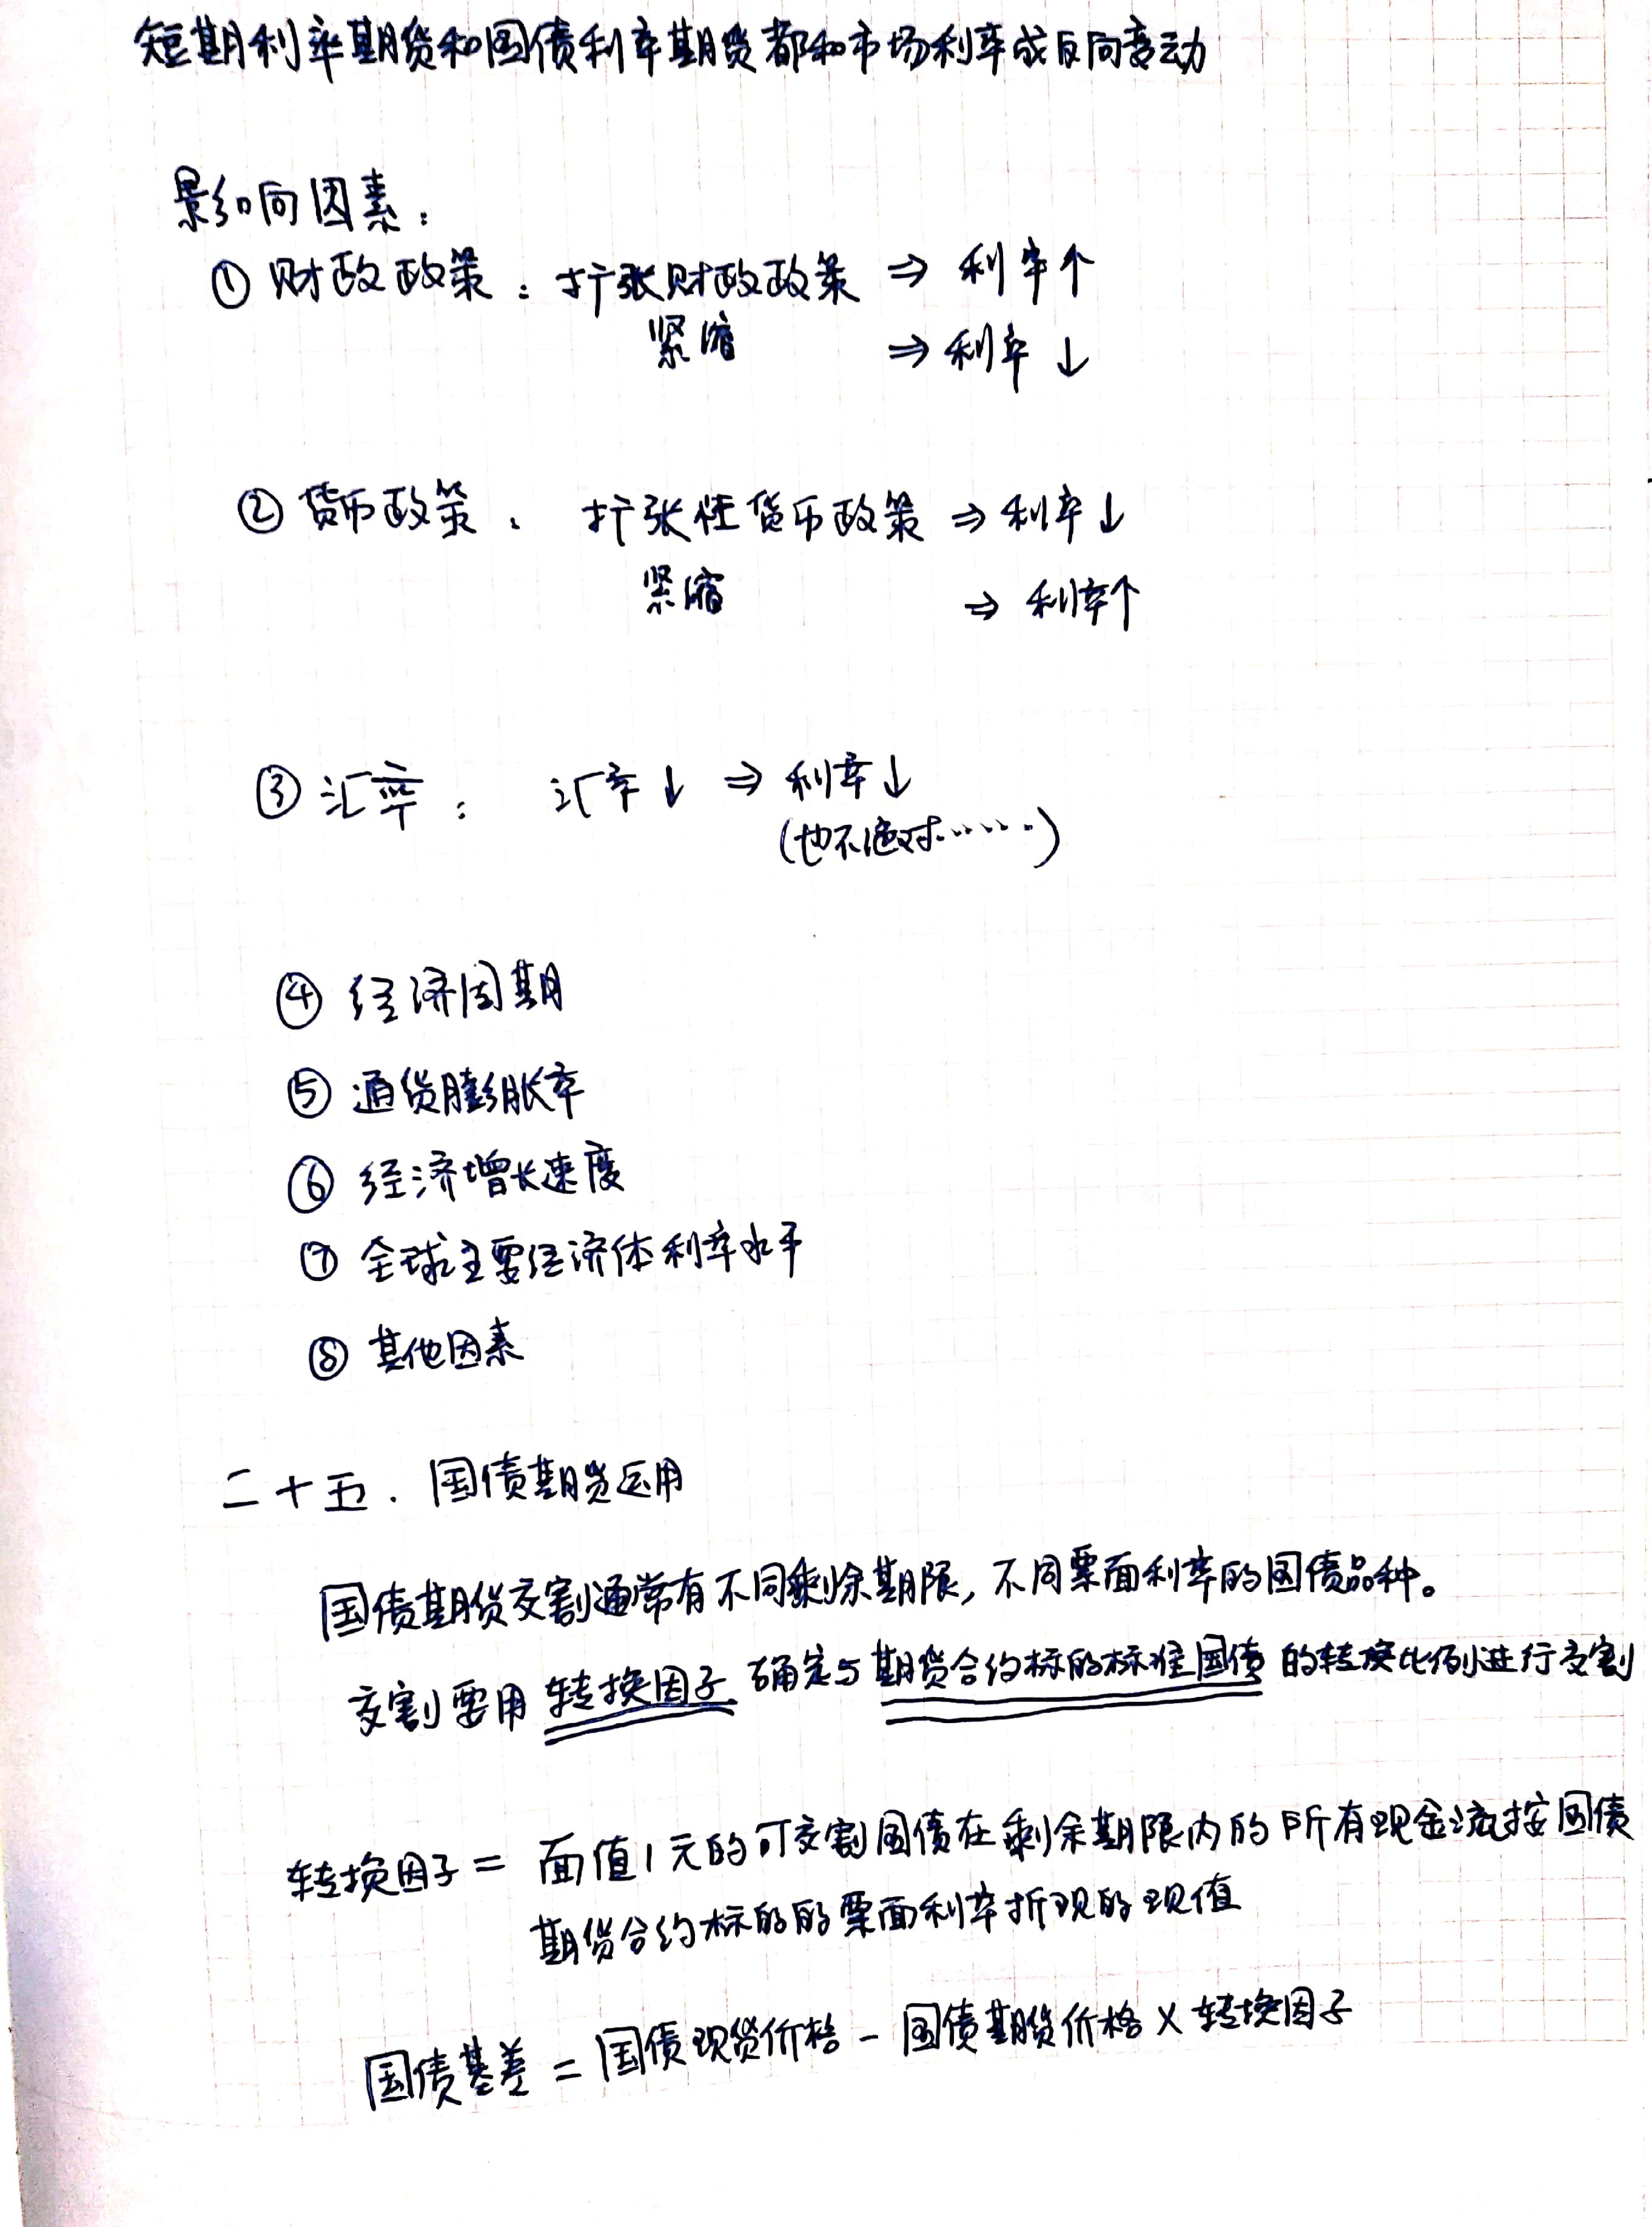 短期利率期货和国债利率期货都和市场利率成反向变动
影响因素：
① 财政政策：扩张财政政策 ⇒ 利率↑
紧缩 ⇒ 利率↓
② 货币政策：扩张性货币政策 ⇒ 利率↓
紧缩 ⇒ 利率↑
③ 汇率：汇率↓ ⇒ 利率↓
（也不绝对……）
④ 经济周期
⑤ 通货膨胀率
⑥ 经济增长速度
⑦ 全球主要经济体利率水平
⑧ 其他因素
二十五．国债期货运用
国债期货交割通常有不同剩余期限，不同票面利率的国债品种。
交割要用转换因子确定与期货合约标的标准国债的转换比例进行交割
转换因子 = 面值1元的可交割国债在剩余期限内的所有现金流按国债
期货合约标的的票面利率折现的现值
国债基差 = 国债现货价格 - 国债期货价格 × 转换因子